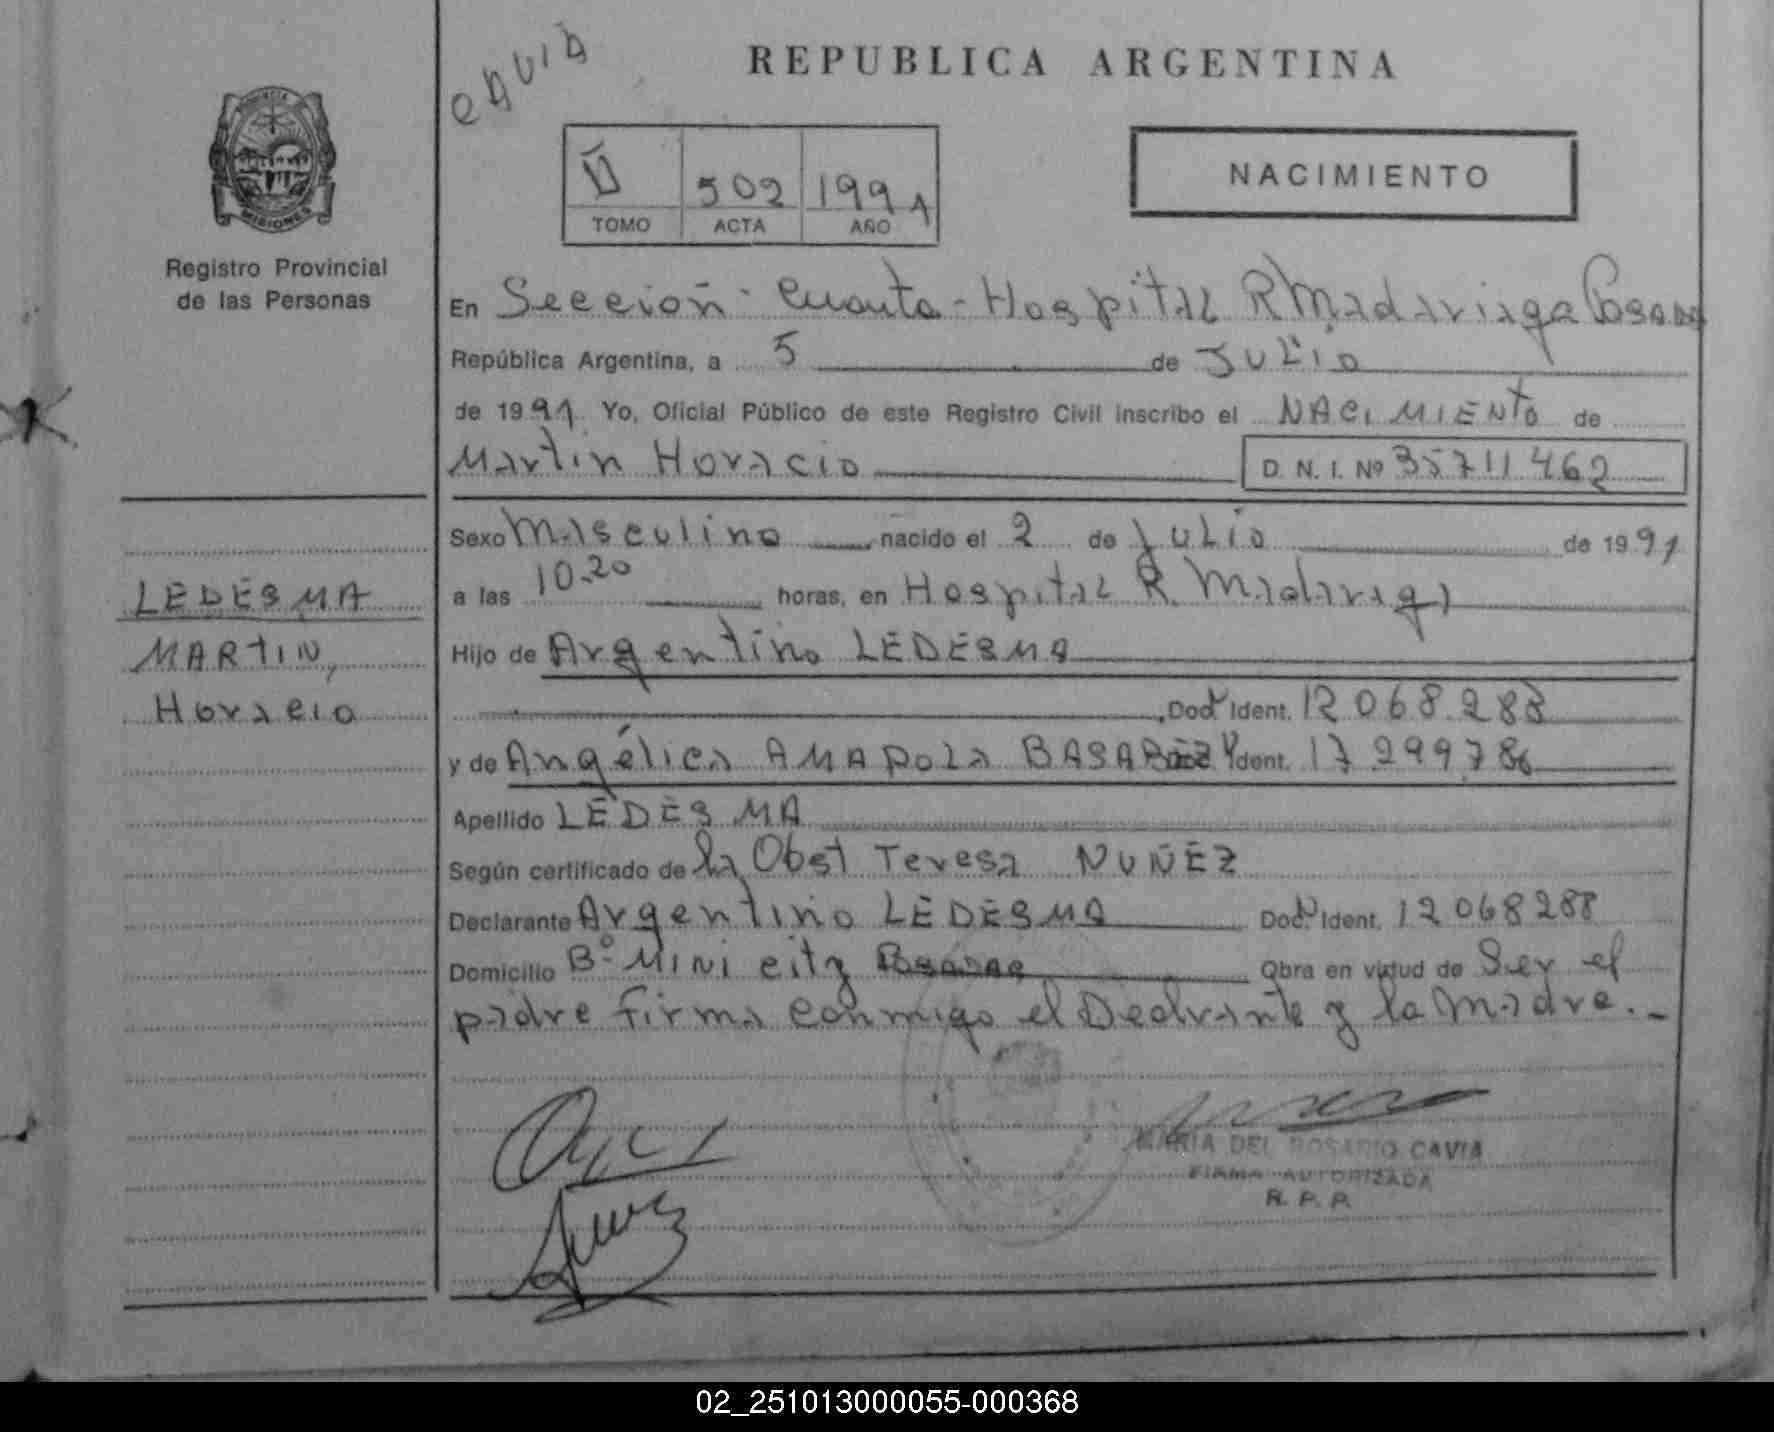 CAVIA
REPUBLICA ARGENTINA
PROVINCIA
MISIONES
Registro Provincial
de las Personas
502 1991
TOMO ACTA AÑO
NACIMIENTO
En Sección Cuarta - Hospital R Madariaga Posadas
República Argentina, a 5 de Julio
de 1991 Yo, Oficial Público de este Registro Civil inscribo el NACIMIENTO de
Martin Horacio
D. N. I. Nº 35711462
LEDESMA
MARTIN,
Horacio
Sexo Masculino nacido el 2 de Julio de 1991
a las 10.20 horas, en Hospital R. Madariaga
Hijo de Argentino LEDESMA
Doc. Ident. 12068288
y de Angélica AMAPOLA Ident. 17299786
Apellido LEDESMA
Según certificado de la Obst Teresa NUÑEZ
Declarante Argentino LEDESMA Doc. Ident. 12068288
Domicilio Bº Mini city Posadas Obra en virtud de Ser el
padre firma conmigo el Declrante y la Madre.-
MARIA DEL ROSARIO CAVIA
FIRMA AUTORIZADA
R. P. P.
02_251013000055-000368